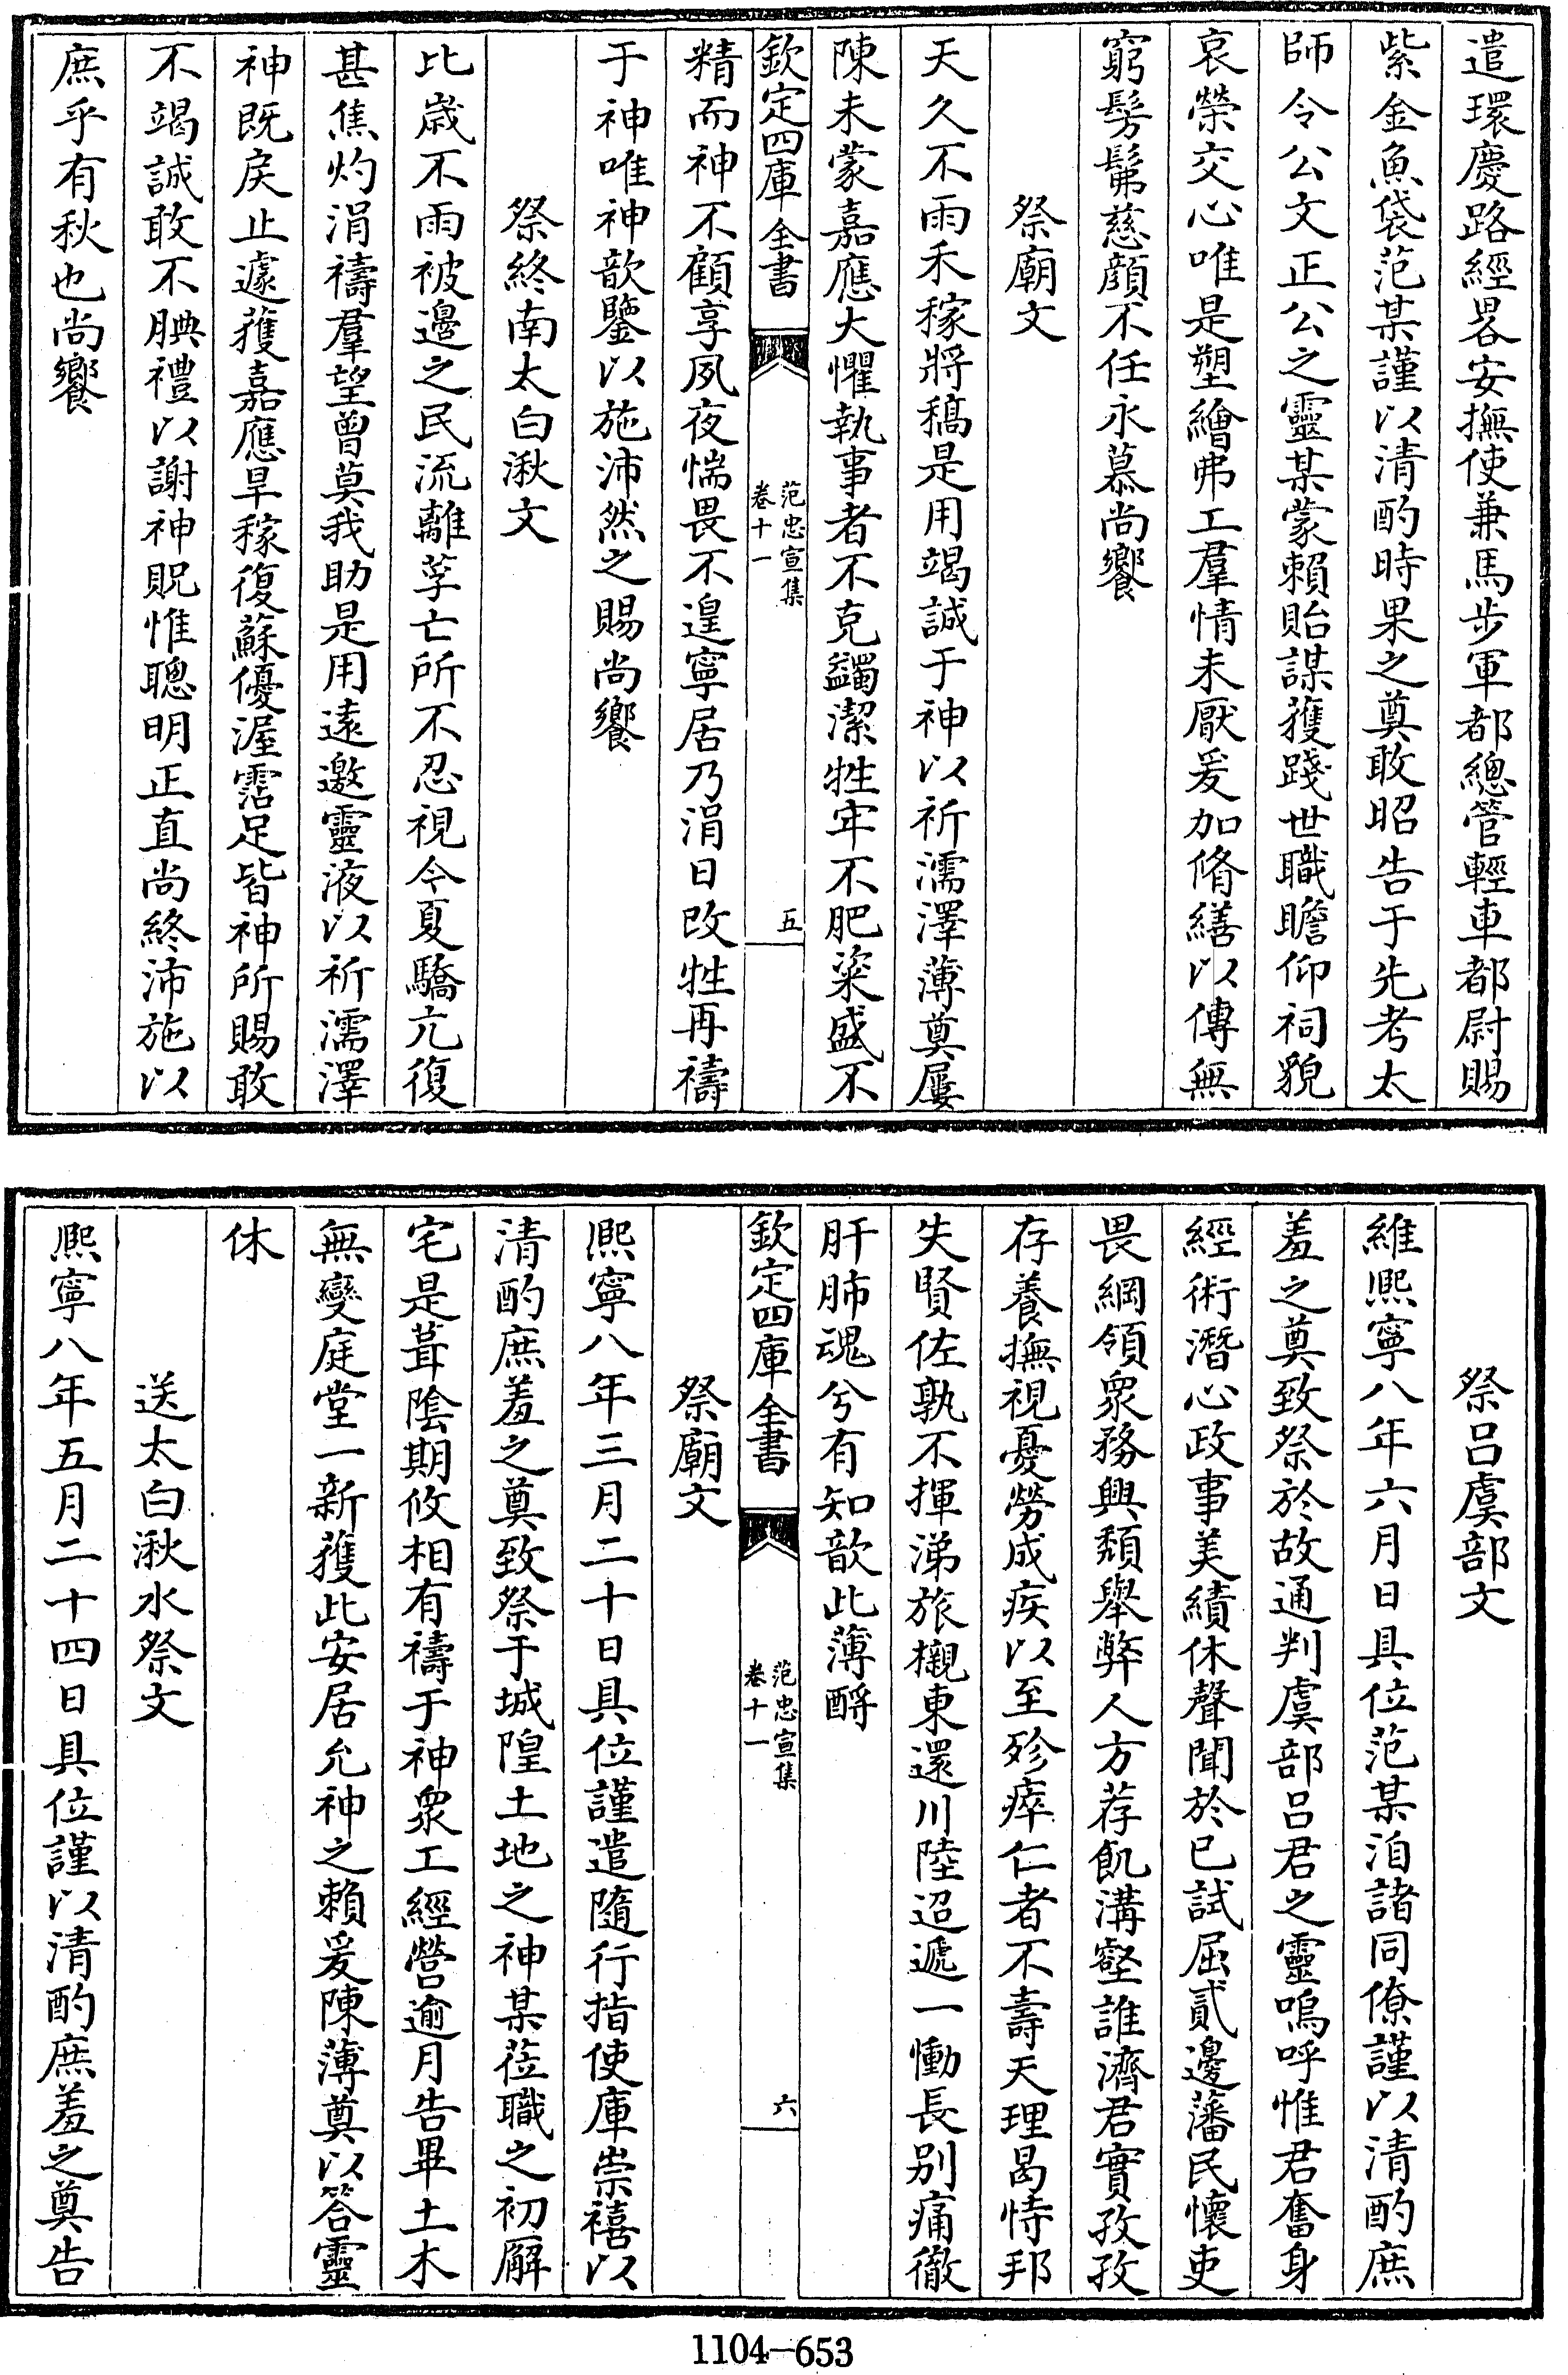 遣環慶路經畧安撫使兼馬步軍都總管輕車都尉賜
紫金魚袋范某謹以清酌時果之奠敢昭告于先考太
師令公文正公之靈某蒙賴貽謀獲踐世職瞻仰祠貌
哀榮交心唯是塑繪弗工羣情未厭爰加脩繕以傳無
窮髣髴慈顔不任永慕尚饗
祭廟文
天久不雨禾稼將稿是用竭誠于神以祈濡澤薄奠屢
陳未蒙嘉應大懼執事者不克蠲潔牲牢不肥粢盛不
欽定四庫全書
范忠宣集
卷十一
五
精而神不顧享夙夜惴畏不遑寧居乃涓日改牲再禱
于神唯神歆鑒以施沛然之賜尚饗
祭終南太白湫文
比歲不雨被邊之民流離莩亡所不忍視今夏驕亢復
甚焦灼涓禱羣望曾莫我助是用遠邀靈液以祈濡澤
神既戾止遽獲嘉應旱稼復蘇優渥霑足皆神所賜敢
不竭誠敢不腆禮以謝神貺惟聰明正直尚終沛施以
庶乎有秋也尚饗
祭呂虞部文
維熙寧八年六月日具位范某洎諸同僚謹以清酌庶
羞之奠致祭於故通判虞部呂君之靈嗚呼惟君奮身
經術潛心政事美績休聲聞於已試屈貳邊藩民懷吏
畏綱領衆務興頽舉弊人方荐飢溝壑誰濟君實孜孜
存養撫視憂勞成疾以至殄瘁仁者不壽天理曷恃邦
失賢佐孰不揮涕旅櫬東還川陸迢遞一慟長别痛徹
肝肺魂兮有知歆此薄酹
欽定四庫全書
范忠宣集
卷十一
六
祭廟文
熙寧八年三月二十日具位謹遣隨行指使庫崇禧以
清酌庶羞之奠致祭于城隍土地之神某莅職之初廨
宅是葺陰期攸相有禱于神衆工經營逾月告畢土木
無變庭堂一新獲此安居允神之賴爰陳薄奠以答靈
休
送太白湫水祭文
熙寧八年五月二十四日具位謹以清酌庶羞之奠告
1104-653